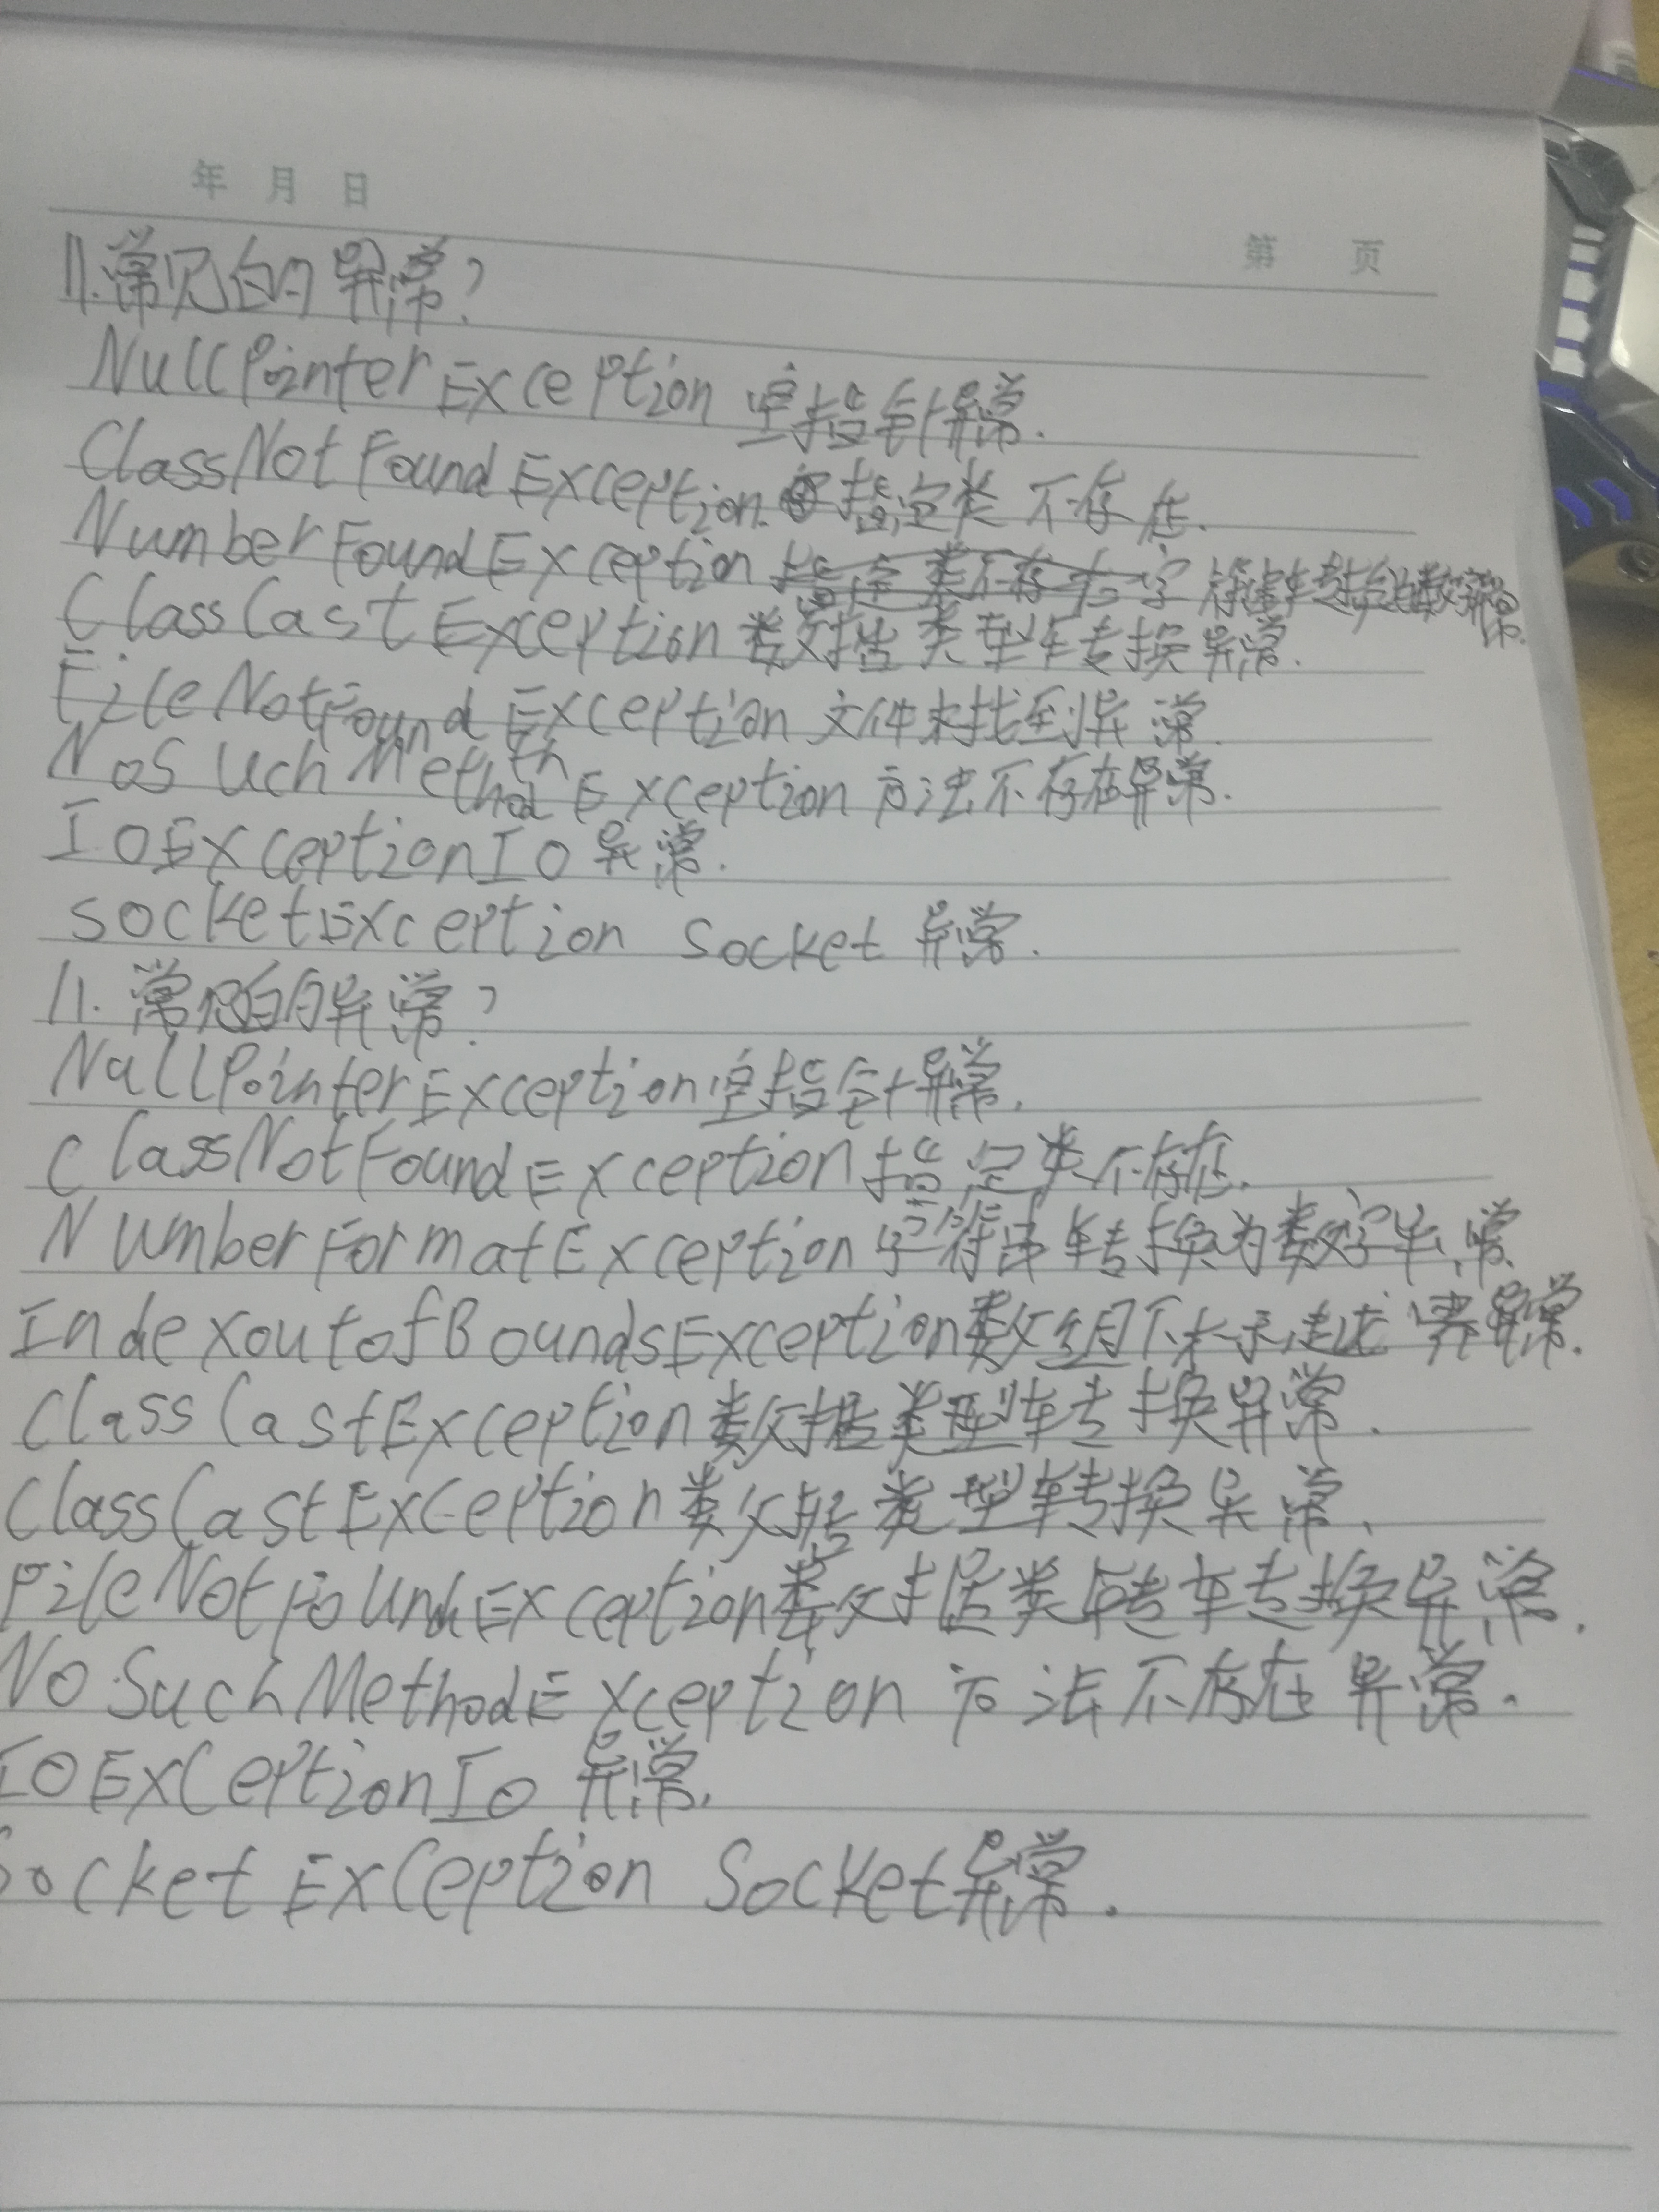 年 月 日
第 页
11.常见的异常?
NullPointerException 空指针异常.
ClassNotFoundException. 指定类不存在.
NumberFoundException 指定类不存在字符串转换数字异常.
ClassCastException 数据类型转换异常.
FileNotFoundException 文件未找到异常.
NoSuchMethodException 方法不存在异常.
IOExceptionIO异常.
socketException Socket 异常.
11. 常见的异常?
NullPointerException空指针异常.
ClassNotFoundException指定类不存在.
NumberFormatException字符串转换为数字异常.
IndexoutofBoundsException数组下标越界异常.
ClassCastException数据类型转换异常.
ClassCastException数据类型转换异常.
FileNotFoundException数据类转转换异常.
NoSuchMethodException 方法不存在异常.
IOExceptionIO 异常.
Socket Exception Socket异常.